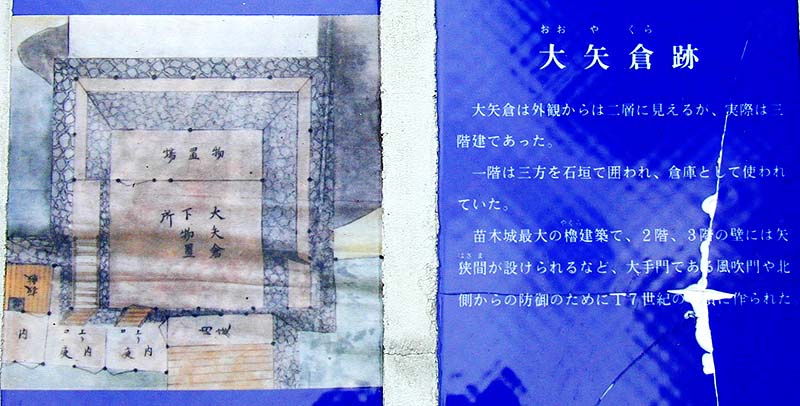 おおやくら
大矢倉跡
大矢倉は外観からは二層に見えるが、実際は三
階建であった。
一階は三方を石垣で囲われ、倉庫として使われ
ていた。
やぐら
苗木城最大の櫓建築で、2階、3階の壁には矢
はざま
狭間が設けられるなど、大手門である風吹門や北
側からの防御のために17世紀の 頃に作られた
物置場
大矢倉
下物置
所
内